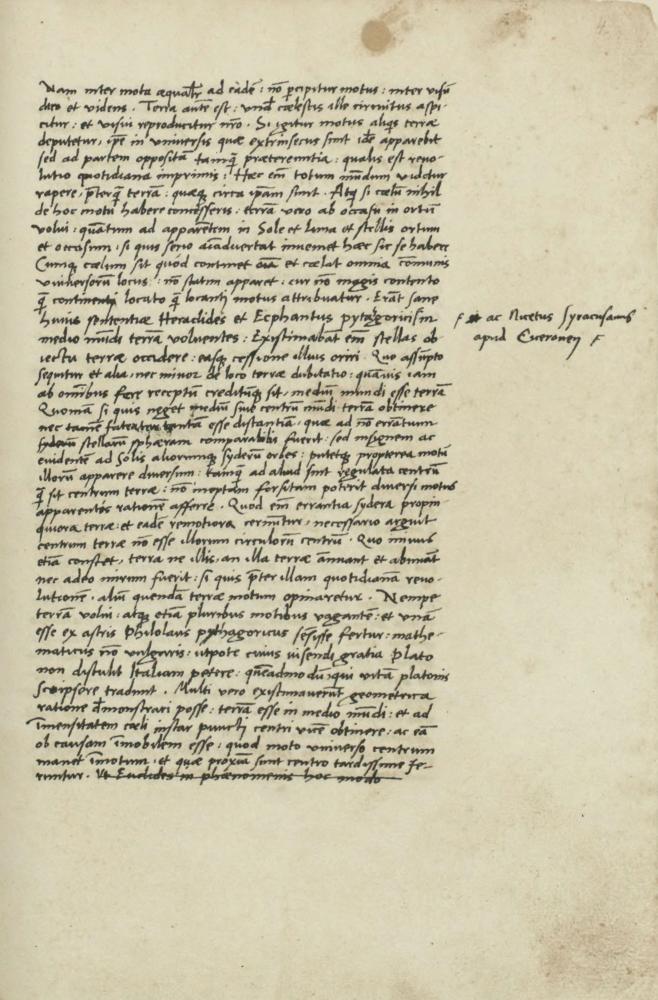 Nam inter mota æqualiter ad eadē : nō pcipitur motus : inter visū
dico et videns . Terra autē est : undē cælestis ille circuitus aspi-
citur : et visui reproducitur nr̄o . Si igitur motus aliqs terræ
deputetur , ipse in universis quæ extrinsecus sunt idē apparebit
sed ad partem oppositā tamq̄ prætereuntia : qualis est revo-
lutio quotidiana imprimis : Hæc em̄ totum mūdum videtur
rapere , p̄terq̄ terrā : quæq, circa ipsam sunt . Atq si cælū nihil
de hoc motu habere concesseris : terrā vero ab occasu in ortū
volui : quantum ad apparētem in Sole et Luna et stellis ortum
et occasum , si quis serio aīadvertat inveniet hæc sic se habere
Cumq, cælum sit quod continet et cælat omnia , cōmunis
universorū locus : nō statim apparet , cur nō magis contento
q̄ continenti locato q̄ locanti motus attribuatur . Erāt sane
huius sententiæ Heraclides et Ecphantus pytagoricism
F ac Nicetus Syracusanus
apud Ciceronem F
medio mūdi terrā volventes : Existimabāt em̄ stellas ob
iectu terræ occidere : easq, cessione illius oriri . Quo assūpto
sequitur et alia , nec minor de loco terræ dubitatio : quāvis iam
ab omnibus fere receptū creditūq, sit , mediū mundi esse terrā
Quoniā si quis neget mediū sive centrū mūdi terrā obtinere
nec tamē fateatur tantā esse distantiā , quæ ad nō erratium
syderū stellarū sphæram comparabilis fuerit : sed insignem ac
evidentē ad Solis aliorumq, syderū orbes : putetq, propterea motū
illorū apparere diversum : tamq̄ ad aliud sint regulata centrū
q̄ sit centrum terræ : nō ineptam forsitan poterit diversi motus
apparentis rationē afferre . Quod em̄ errantia sydera propin
quiora terræ : et eadē remotiora cernūtur , necessario arguit
centrum terræ nō esse illorum circulorū centrū . Quo minus
etiā constet , terra ne illis , an illa terræ annuāt et abnuāt
nec adeo mirum fuerit : si quis p̄ter illam quotidianā revo-
lutionē , aliū quendā terræ motum opinaretur . Nempe
terrā volui , atq, etiā pluribus motibus vagantē : et unā
esse ex astris Philolaus pythagoricus sēsisse fertur : mathe-
maticus nō vulgaris : utpote cuius visendi gratia Plato
non distulit Italiam petere : quēadmodū qui vitā platonis
scripsere tradunt . Multi vero existimaverūt geometrica
ratione dēmonstrari posse : terrā esse in medio mūdi : et ad
īmensitatem cæli instar puncti centri vicē obtinere : ac eā
ob causam īmobilem esse : quod moto universo centrum
manet īmotum , et quæ proxīa sunt centro tardissime fe-
runtur . Ut Euclides in phænomenis hoc modo